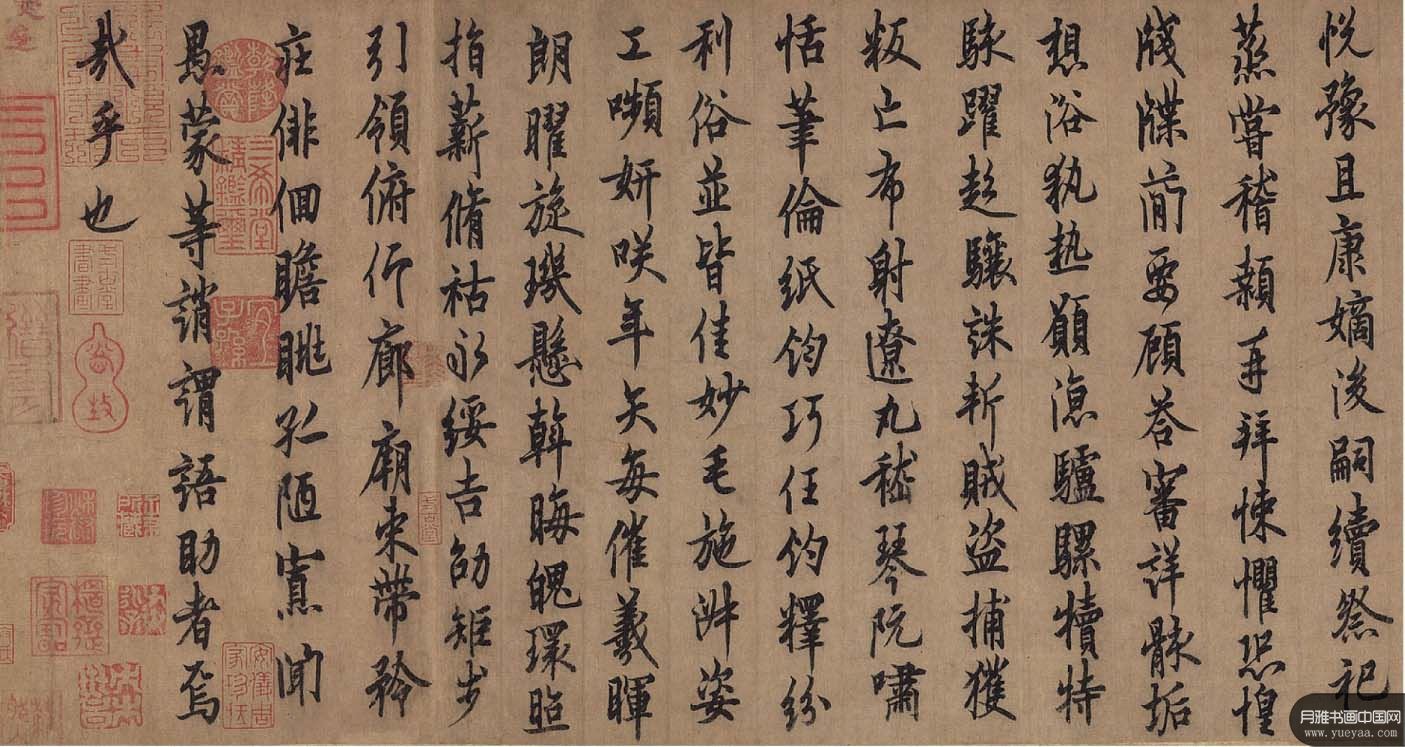 悦豫且康嫡後嗣續祭祀
蒸嘗稽顙再拜悚懼恐惶
牋牒簡要顧答審詳骸垢
想浴執熱願涼驢騾犢特
駭躍超驤誅斬賊盜捕獲
叛亡布射遼丸嵇琴阮嘯
恬筆倫紙鈞巧任釣釋紛
利俗並皆佳妙毛施淑姿
工嚬妍咲年矢每催羲暉
朗曜旋璣懸斡晦魄環照
指薪脩祜永綏吉劭矩步
引領俯仰廊廟束帶矜
莊俳佪瞻眺孤陋寡聞
愚蒙等誚謂語助者焉
哉乎也
三希堂精鑑璽
宜子孫
安儀周家珍藏
月雅书画中国网
www.yueyaa.com